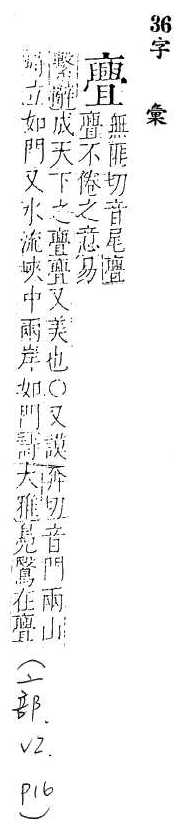 36字彙
亹 無匪切音尾亹
亹不倦之意易
繫辭成天下之亹亹又美也○又謨奔切音門兩山
對立如門又水流峽中兩岸如門詩大雅鳧鷖在亹
(亠部. V2. P16)